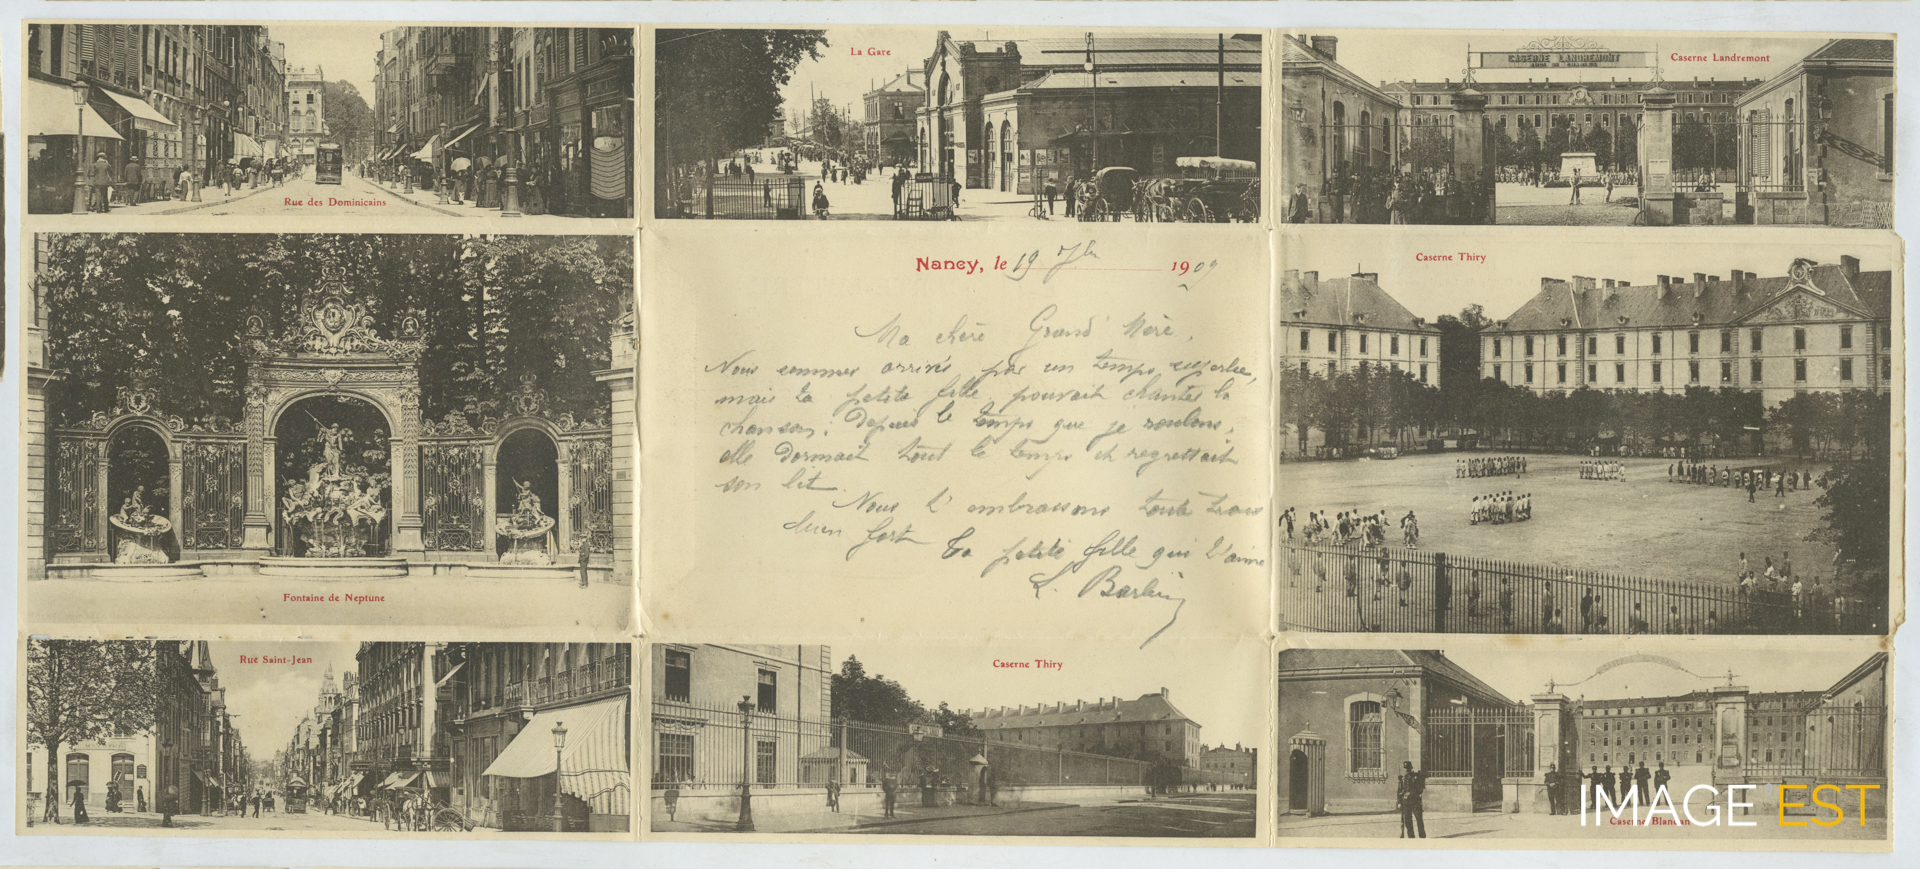 Rue des Dominicains
La Gare
CASERNE LANDREMONT
Caserne Landremont
Fontaine de Neptune
Nancy, le 19 7bre 1909
Ma chère Grand' Mère,
Nous sommes arrivés par un temps superbe,
mais la petite fille pouvait chanter la
chanson: Depuis le temps que je roulons,
elle dormait tout le temps et regrettait
son lit.
Nous t'embrassons toute trois
bien fort Ta petite fille qui t'aime
L. Barbier
Caserne Thiry
Rue Saint-Jean
Caserne Thiry
Caserne Blandan
IMAGE EST